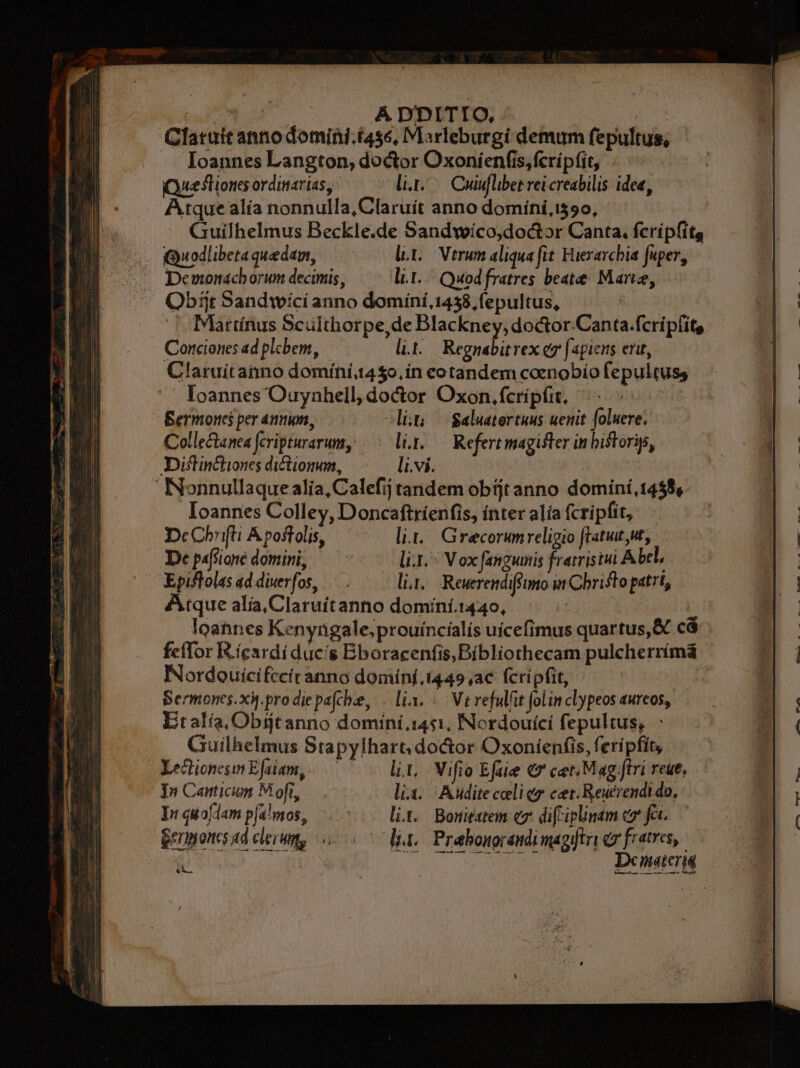 ADDITIO,
Claruit anno domini.1456, Marleburgi demum ſepultus,
Ioannes Langton, doctor Oxonienſis, ſcripſit,
Quæſtiones ordinarias, li.1. Cuiuſlibet rei creabilis ideæ,
Atque alia nonnulla, Claruit anno domini,1390,
Guilhelmus Beckle.de Sandwico,doctor Canta. ſcripſit,
Quodlibeta quædam, li.1. Vtrum aliqua ſit Hierarchia ſuper,
De monachorum decimis, li.1. Quod fratres beatæ Mariæ,
Obijt Sandwici anno domini,1438,ſepultus,
Martinus Sculthorpe,de Blackney, doctor Canta.ſcripſit,
Conciones ad plebem, li.1. Regnabit rex & ſapiens erit,
Claruit anno domini,1430,in eo tandem cœnobio ſepultus,
Ioannes Ouynhell, doctor Oxon.ſcripſit,
Sermones per annum, li.1, Saluator tuus uenit ſoluere.
Collectanea ſcripturarum, li.1. Refert magiſter in hiſtorijs,
Diſtinctiones dictionum, li.vi.
Nonnullaque alia, Calefij tandem obijt anno domini,1438,
Ioannes Colley, Doncaſtrienſis, inter alia ſcripſit,
De Chriſti Apoſtolis, li.1. Græcorum religio ſtatuit,ut,
De paſſione domini, li.1. Vox ſanguinis fratris tui Abel,
Epiſtolas ad diuerſos, li.1. Reuerendiſſimo in Chriſto patri,
Atque alia, Claruit anno domini.1440,
Ioannes Kenyngale,prouincialis uiceſimus quartus,& cõ
feſſor Ricardi ducis Eboracenſis,Bibliothecam pulcherrimã
Nordouici fecit anno domini,1449,ac ſcripſit,
Sermones.xij.pro die paſchæ, li.1. Vt refulſit ſol in clypeos aureos,
Et alia, Obijt anno domini,1451, Nordouici ſepultus,
Guilhelmus Stapylhart, doctor Oxonienſis, ſcripſit,
Lectiones in Eſaiam, li.1. Viſio Eſaiæ & cæt. Magiſtri reue,
In Canticum Moſi, li.1. Audite cœli & cæt. Reuerendi do,
In quoſdam pſalmos, li.1. Bonitatem & diſciplinam & ſci.
Sermones ad clerum, li.1. Præhonorandi magiſtri & fratres,
De materia